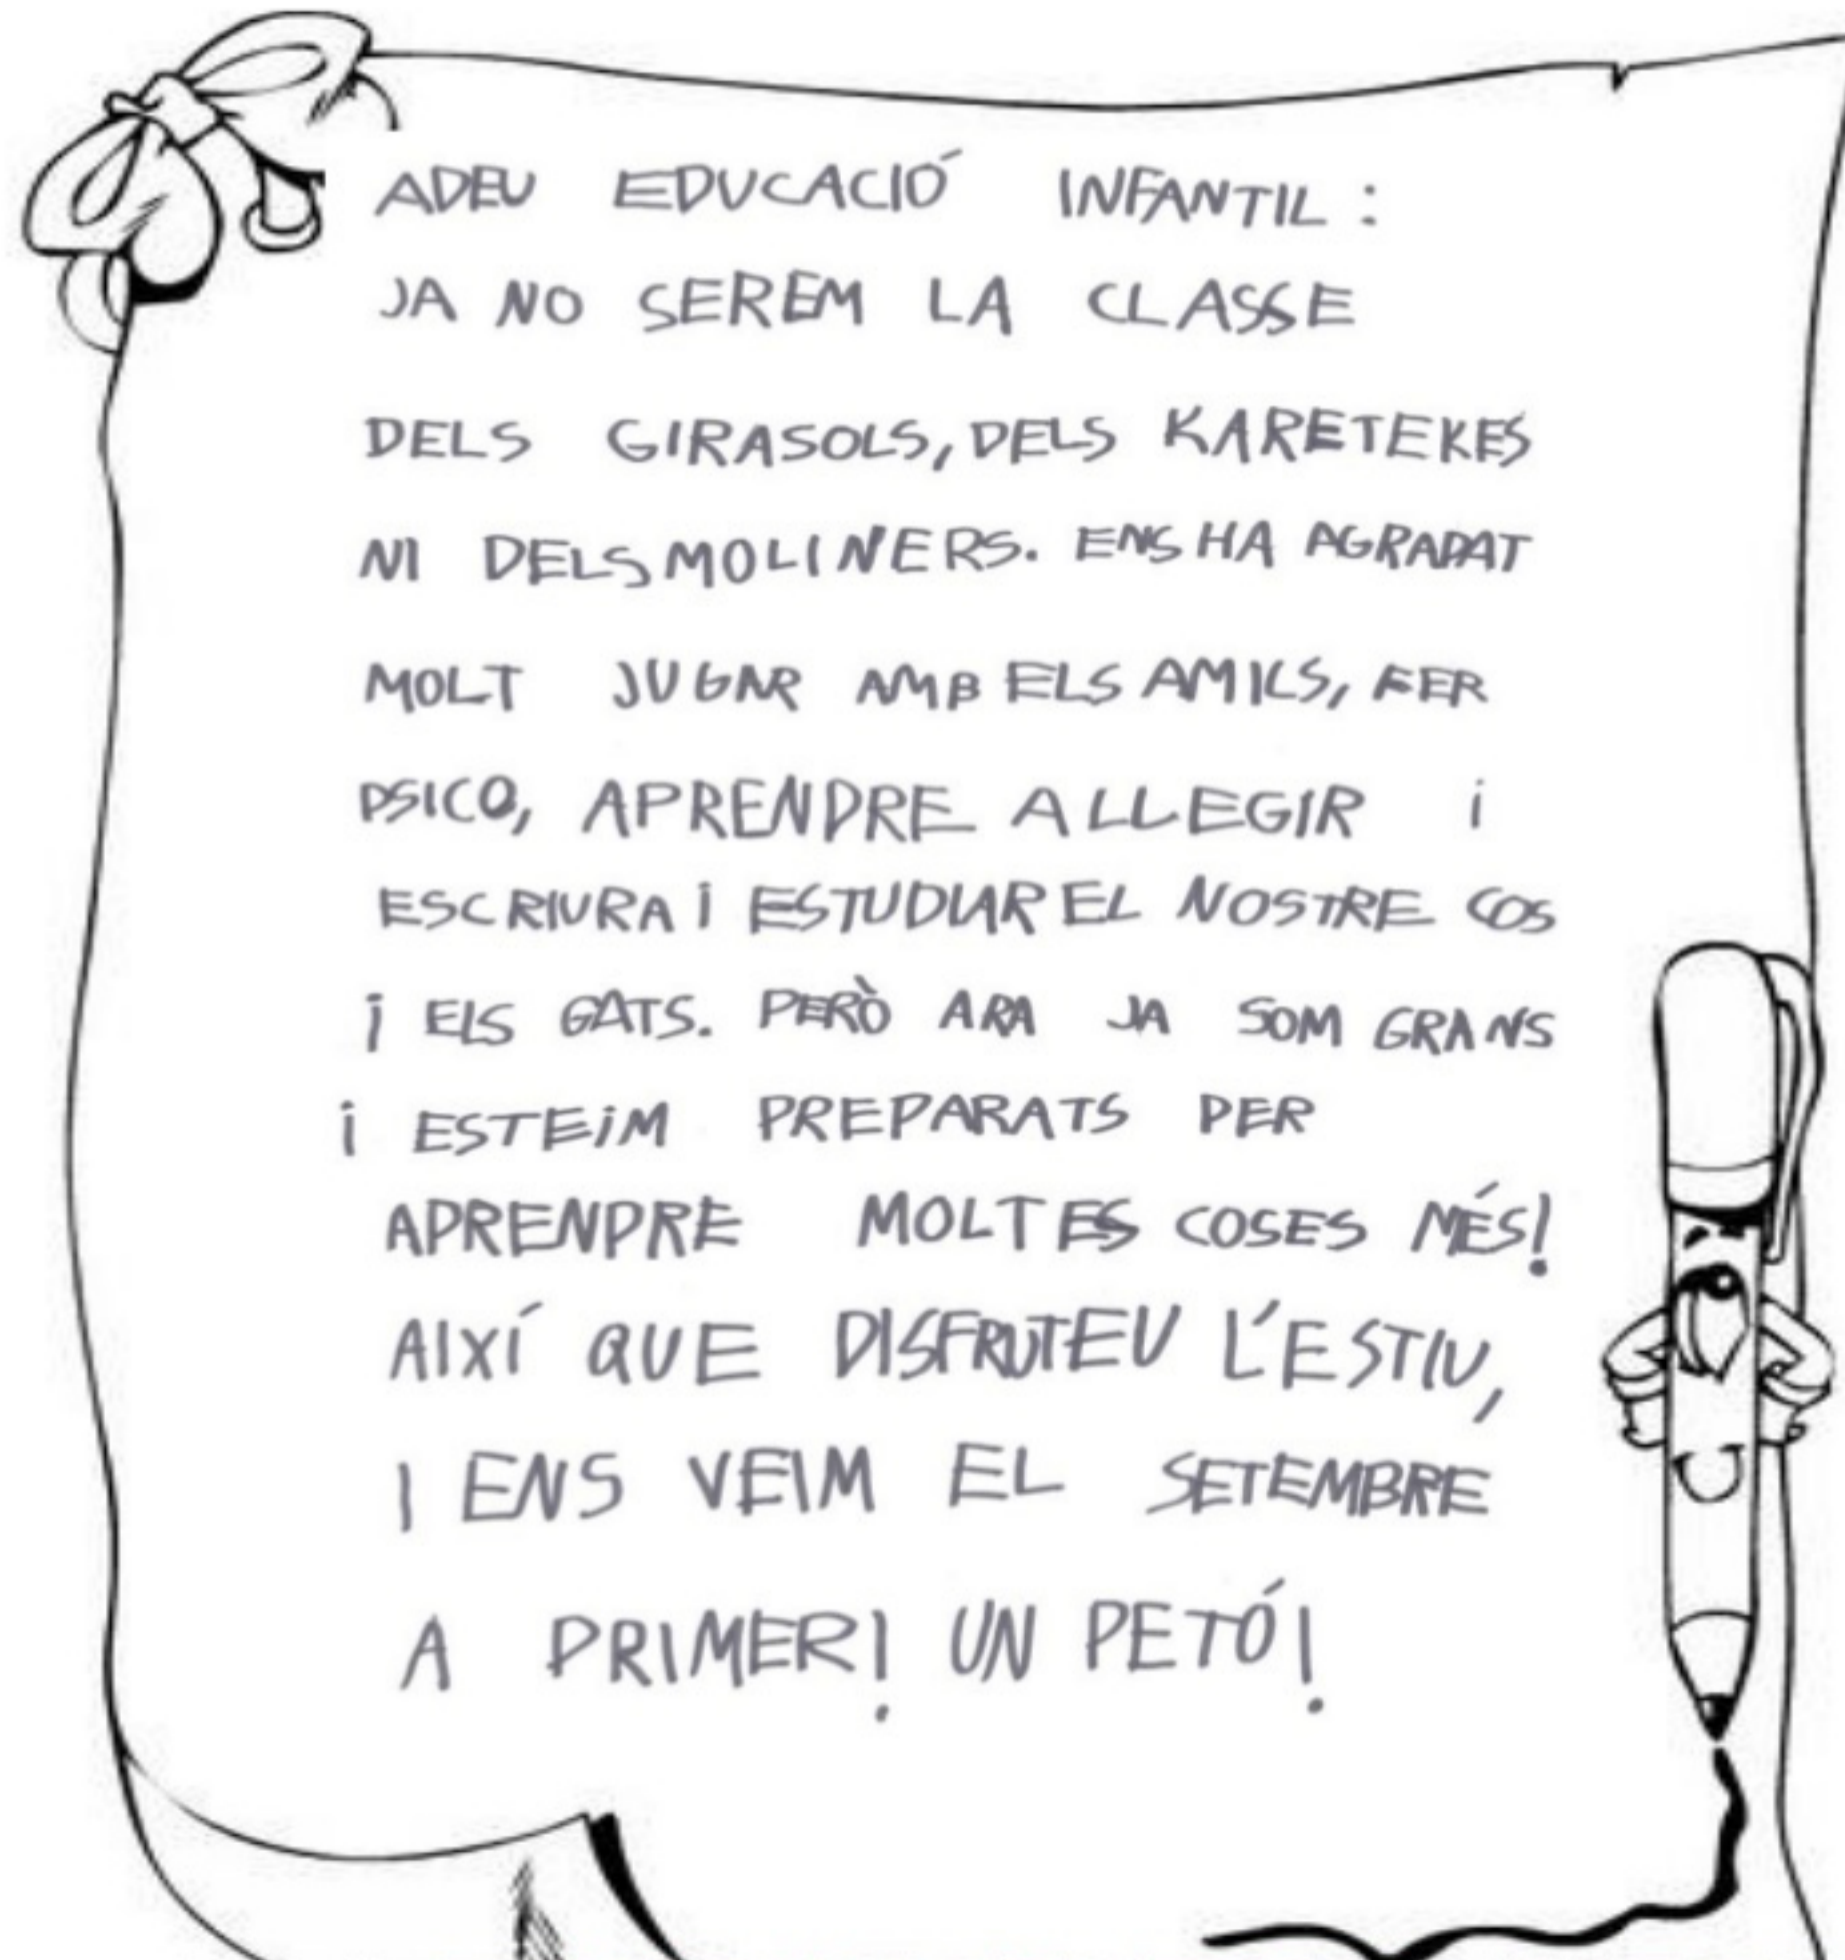 ADEU EDUCACIÓ INFANTIL:
JA NO SEREM LA CLASSE
DELS GIRASOLS, DELS KARETEKES
NI DELS MOLINERS. ENS HA AGRADAT
MOLT JUGAR AMB ELS AMICS, FER
PSICO, APRENDRE A LLEGIR i
ESCRIURA i ESTUDIAR EL NOSTRE COS
i ELS GATS. PERÒ ARA JA SOM GRANS
i ESTEiM PREPARATS PER
APRENDRE MOLTES COSES MÉS!
AIXÍ QUE DISFRUTEU L'ESTIU,
I ENS VEIM EL SETEMBRE
A PRIMER! UN PETÓ!